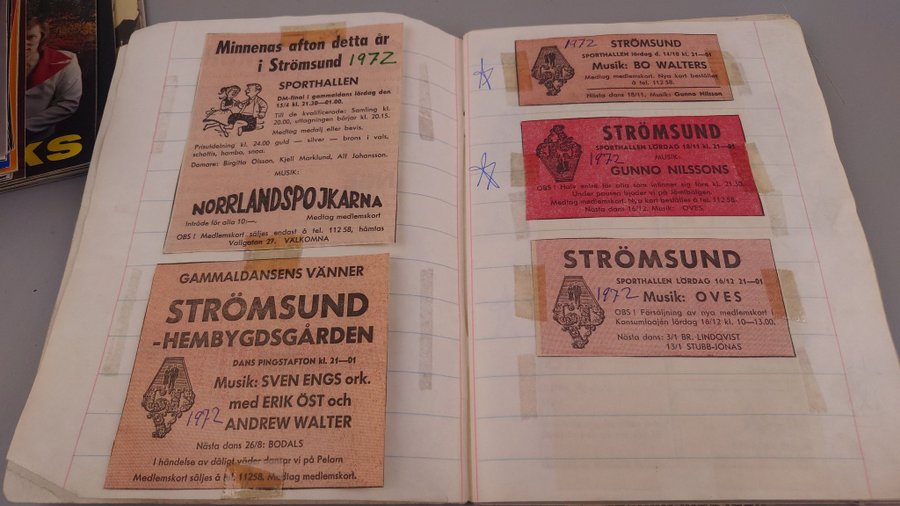 KS
Minnenas afton detta år
i Strömsund 1972
SPORTHALLEN
DM-final i gammaldans lördag den
15/4 kl. 21.30—01.00.
Till de kvalificerade: Samling kl.
20.00, uttagningen börjar kl. 20.15.
Medtag medalj eller bevis.
Prisutdelning kl. 24.00 guld — silver — brons i vals,
schottis, hambo, snoa.
Domare: Birgitta Olsson, Kjell Marklund, Alf Johansson.
MUSIK:
NORRLANDSPOJKARNA
Inträde för alla 10:—.
Medtag medlemskort
OBS! Medlemskort säljes endast å tel. 112 58, hämtas
Vallgatan 27. VÄLKOMNA
GAMMALDANSENS VÄNNER
STRÖMSUND
-HEMBYGDSGÅRDEN
DANS PINGSTAFTON kl. 21—01
Musik: SVEN ENGS ork.
med ERIK ÖST och
1972 ANDREW WALTER
Nästa dans 26/8: BODALS
I händelse av dåligt väder dansar vi på Pelarn
Medlemskort säljes å tel. 11258. Medtag medlemskort.
1972 STRÖMSUND
SPORTHALLEN lördag d. 14/10 kl. 21—01
Musik: BO WALTERS
Medtag medlemskort. Nya kort beställes
å tel. 112 58.
Nästa dans 18/11, Musik: Gunno Nilsson
STRÖMSUND
SPORTHALLEN LÖRDAG 18/11 21—01
1972 MUSIK:
GUNNO NILSSONS
OBS! Halv entré för alla som infinner sig före kl. 21.30.
Under pausen bjuder vi på
Medtag medlemskort. Nya kort beställes å tel. 112 58.
Nästa dans 16/12. Musik: OVES
STRÖMSUND
SPORTHALLEN LÖRDAG 16/12 21—01
1972 Musik: OVES
OBS! Försäljning av nya medlemskort i
Konsumlaajén lördag 16/12 kl. 10—13.00.
Nästa dans: 3/1 BR. LINDQVIST
13/1 STUBB-JONAS